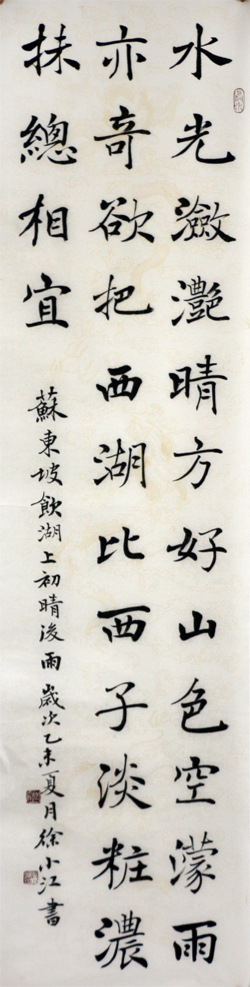 水光瀲灧晴方好山色空濛雨
亦奇欲把西湖比西子淡粧濃
抹總相宜
蘇東坡飲湖上初晴後雨歲次乙未夏月徐小江書